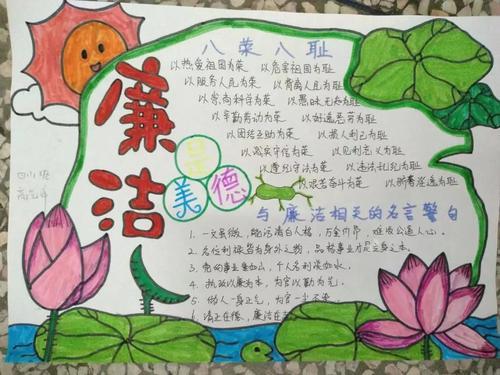 八荣八耻
以热爱祖国为荣 以危害祖国为耻
以服务人民为荣 以背离人民为耻
以崇尚科学为荣 以愚昧无知为耻
以辛勤劳动为荣 以好逸恶劳为耻
以团结互助为荣 以损人利己为耻
以诚实守信为荣 以见利忘义为耻
以遵纪守法为荣 以违法乱纪为耻
以艰苦奋斗为荣 以骄奢淫逸为耻
廉洁
是
美德
与廉洁相关的名言警句
1. 一文虽微,能污清白人格,万金
2. 名位利禄皆为身外之物,品格事业才是立身之本。
3. 党的事业重如山,个人名利淡如水。
4. 执政以廉为本,为官以勤为先。
5. 做人一身正气,为官一尘不染。
6. 清正在德,廉洁在